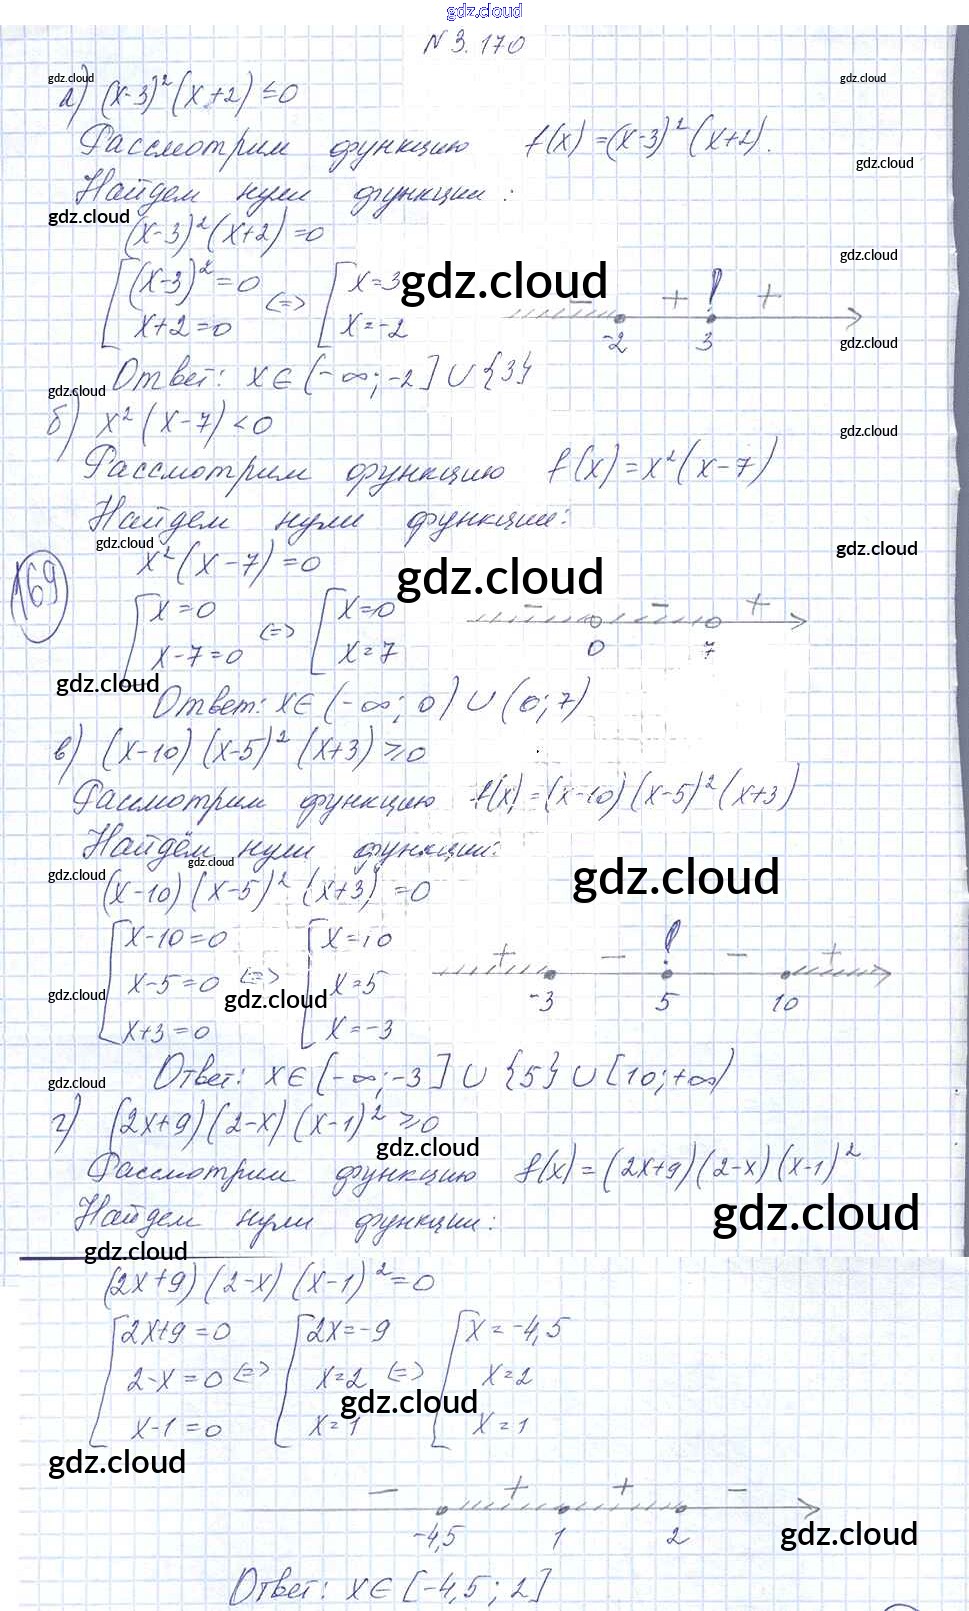 gdz.cloud
N 3.170
gdz.cloud gdz.cloud
а) (x-3)² (x+2) ≤0
Рассмотрим функцию f(x) =(x-3)² (x+2).
gdz.cloud
Найдем нули функции:
gdz.cloud
(x-3)² (x+2) =0
gdz.cloud
[ (x-3)² =0 (=) [ x=3 gdz.cloud − + ! +
x+2=0 x=-2 -2 3
gdz.cloud
Ответ: x∈ (-∞;-2] ∪ {3}
gdz.cloud
б) x² (x-7) <0
gdz.cloud
Рассмотрим функцию f(x) =x² (x-7)
Найдем нули функции:
gdz.cloud gdz.cloud
x² (x-7) =0
169
gdz.cloud
[ x=0 (=) [ x=0 − − +
x-7=0 x=7 0 7
gdz.cloud
Ответ: x∈ (-∞; 0) ∪ (0; 7)
в) (x-10) (x-5)² (x+3) ≥0
Рассмотрим функцию f(x) = (x-10) (x-5)² (x+3)
Найдём нули функции:
gdz.cloud gdz.cloud gdz.cloud
(x-10) (x-5)² (x+3) =0
[ x-10=0 [ x=10 + − ! − +
x-5=0 (=) x=5 -3 5 10
gdz.cloud gdz.cloud
x+3=0 x=-3
Ответ: x∈ (-∞;-3] ∪ {5} ∪ [10;+∞)
gdz.cloud
г) (2x+9) (2-x) (x-1)² ≥0
gdz.cloud
Рассмотрим функцию f(x) = (2x+9) (2-x) (x-1)²
Найдем нули функции:
gdz.cloud
gdz.cloud
(2x+9) (2-x) (x-1)² =0
[ 2x+9=0 [ 2x=-9 [ x=-4,5
2-x=0 (=) x=2 (=) x=2
gdz.cloud
x-1=0 x=1 x=1
gdz.cloud
− + + −
-4,5 1 2
gdz.cloud
Ответ: x∈ [-4,5; 2]